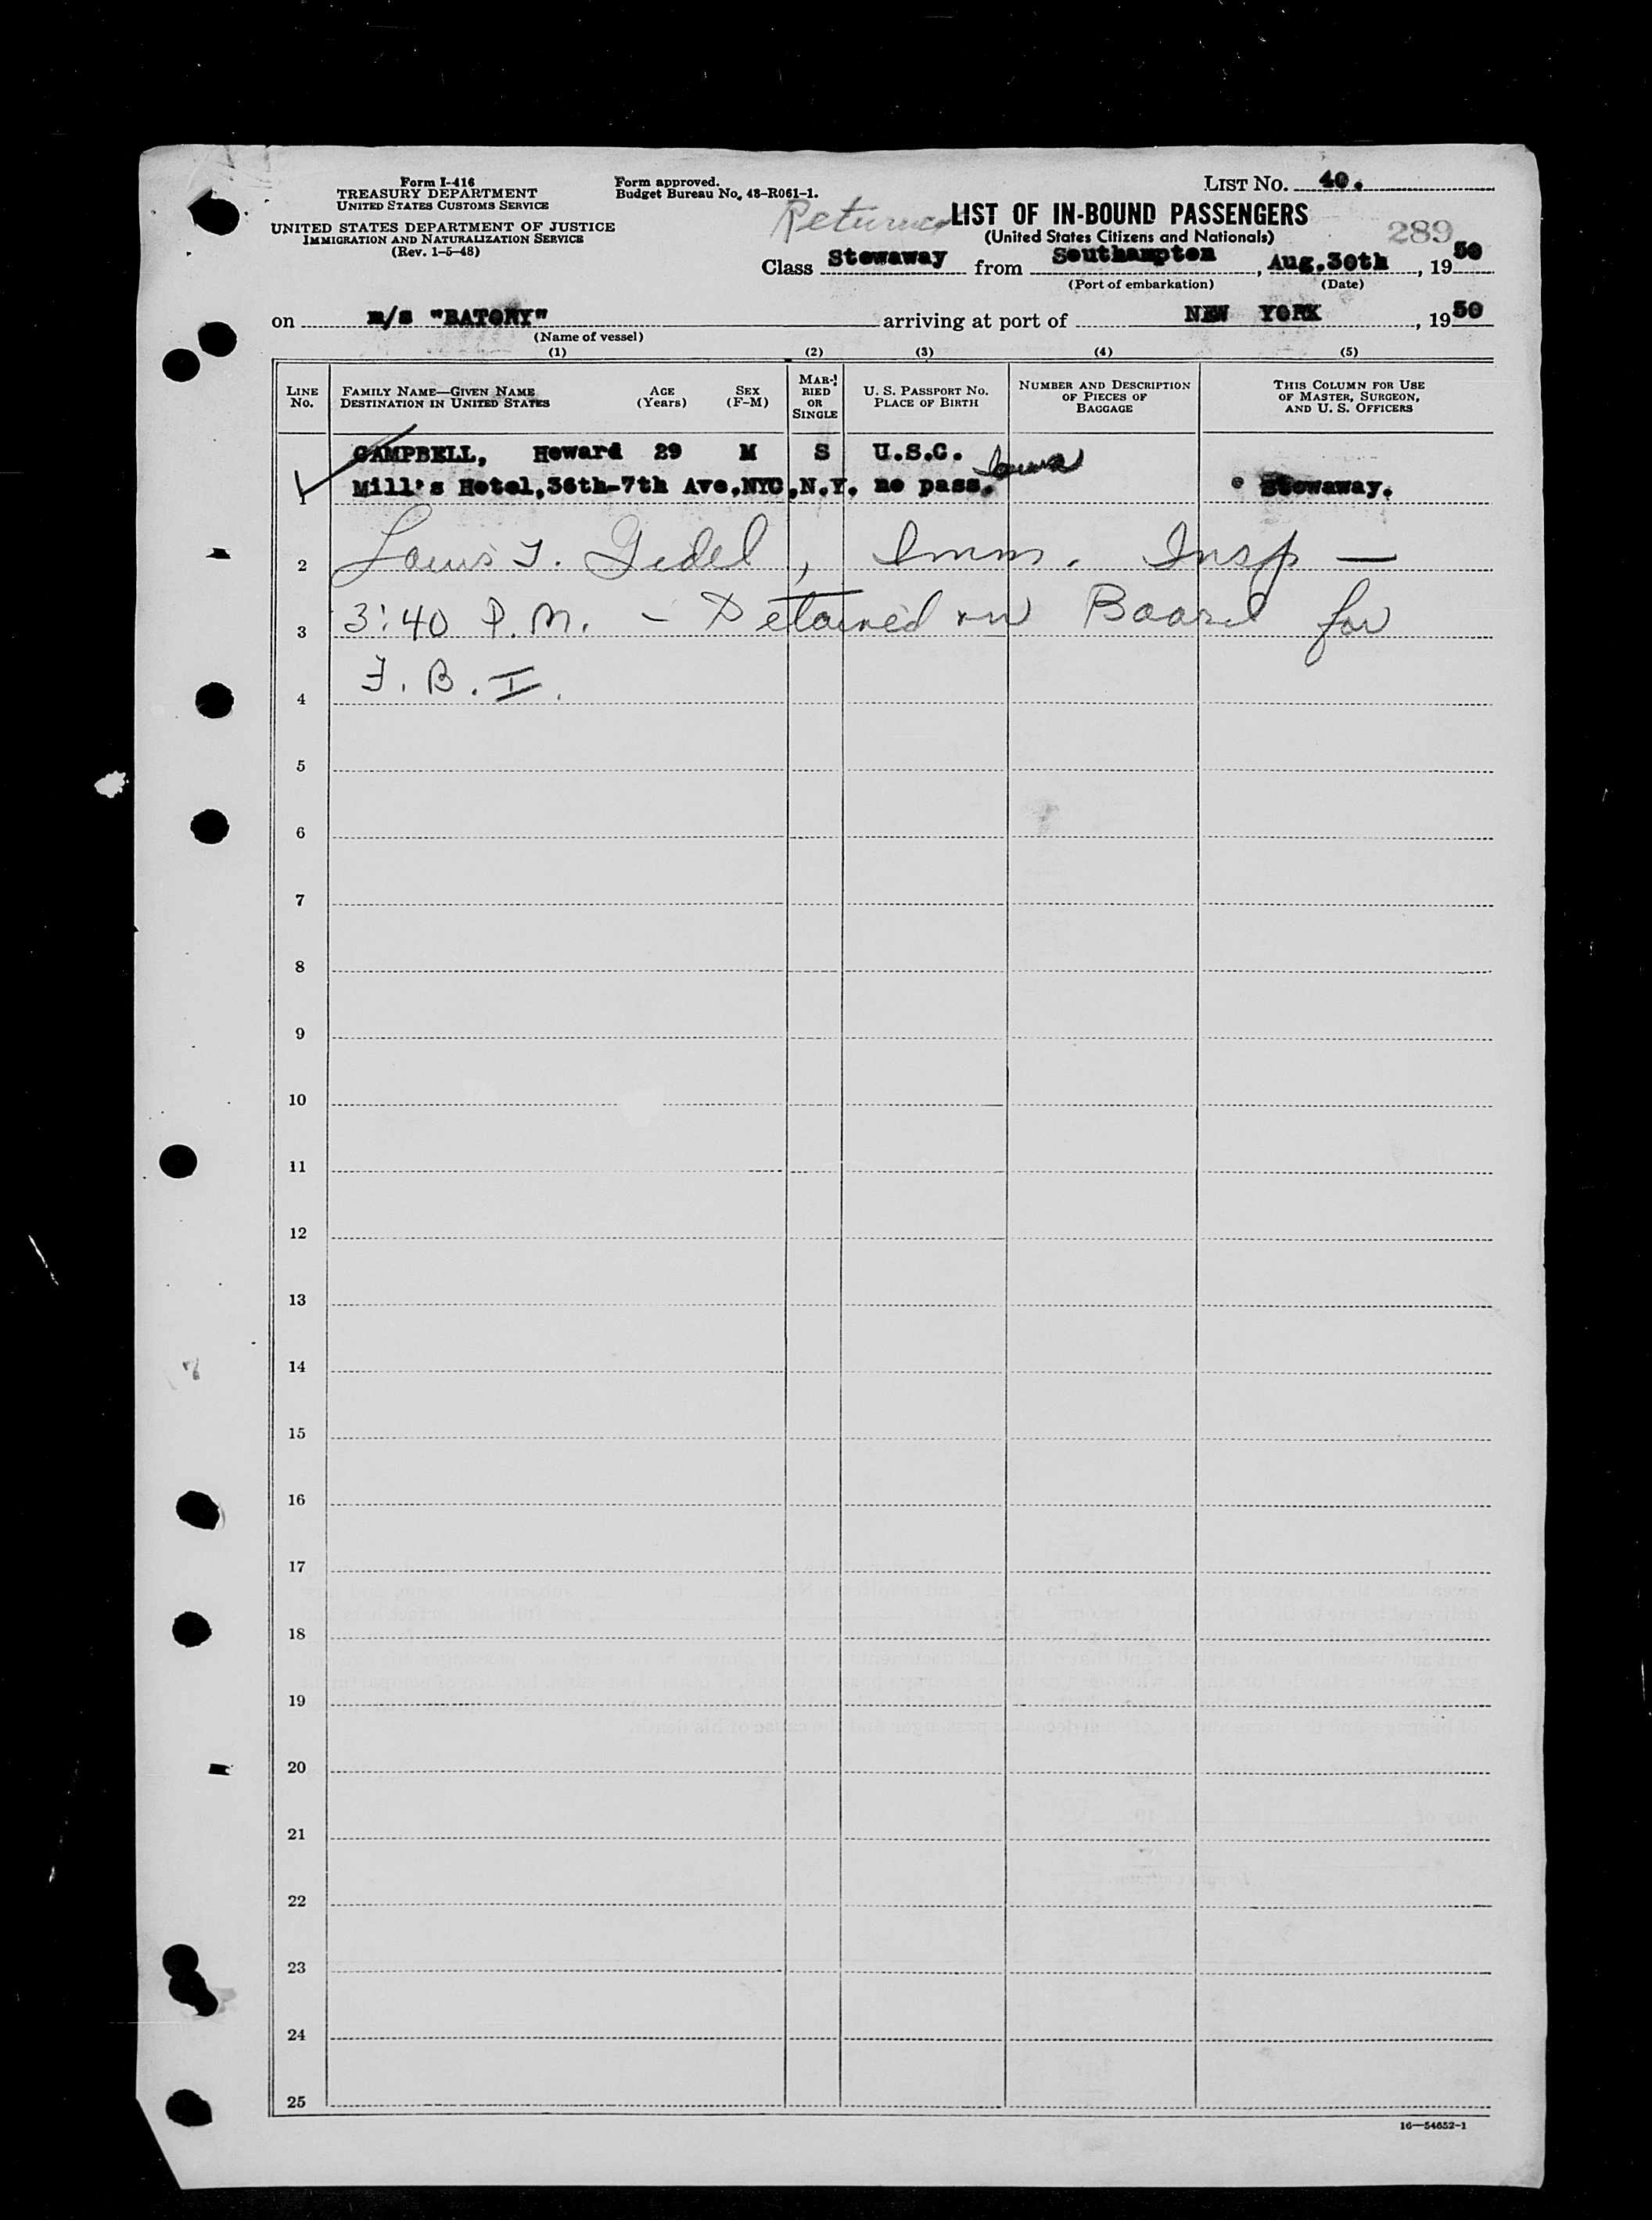 Form I-416
TREASURY DEPARTMENT
UNITED STATES CUSTOMS SERVICE
UNITED STATES DEPARTMENT OF JUSTICE
IMMIGRATION AND NATURALIZATION SERVICE
(Rev. 1-5-48)
Form approved.
Budget Bureau No. 43-R061-1.
LIST No. 40.
LIST OF IN-BOUND PASSENGERS
(United States Citizens and Nationals)
289
Class Stowaway from Southampton, Aug.30th, 1950
(Port of embarkation) (Date)
on m/s "BATORY" arriving at port of NEW YORK, 1950
(Name of vessel)
(1) (2) (3) (4) (5)
LINE No.
FAMILY NAME—GIVEN NAME
DESTINATION IN UNITED STATES
AGE
(Years)
SEX
(F-M)
MARRIED
OR
SINGLE
U. S. PASSPORT No.
PLACE OF BIRTH
NUMBER AND DESCRIPTION
OF PIECES OF
BAGGAGE
THIS COLUMN FOR USE
OF MASTER, SURGEON,
AND U. S. OFFICERS
CAMPBELL, Howard 29 M S U.S.C.
1 Mill's Hotel,36th-7th Ave,NYC,N.Y. no pass. Iowa Stowaway.
2 Louis , Imm. Insp —
3 3:40 P.M. – Detained on Board for
4 F.B.I.
5
6
7
8
9
10
11
12
13
14
15
16
17
18
19
20
21
22
23
24
25
16—54652-1